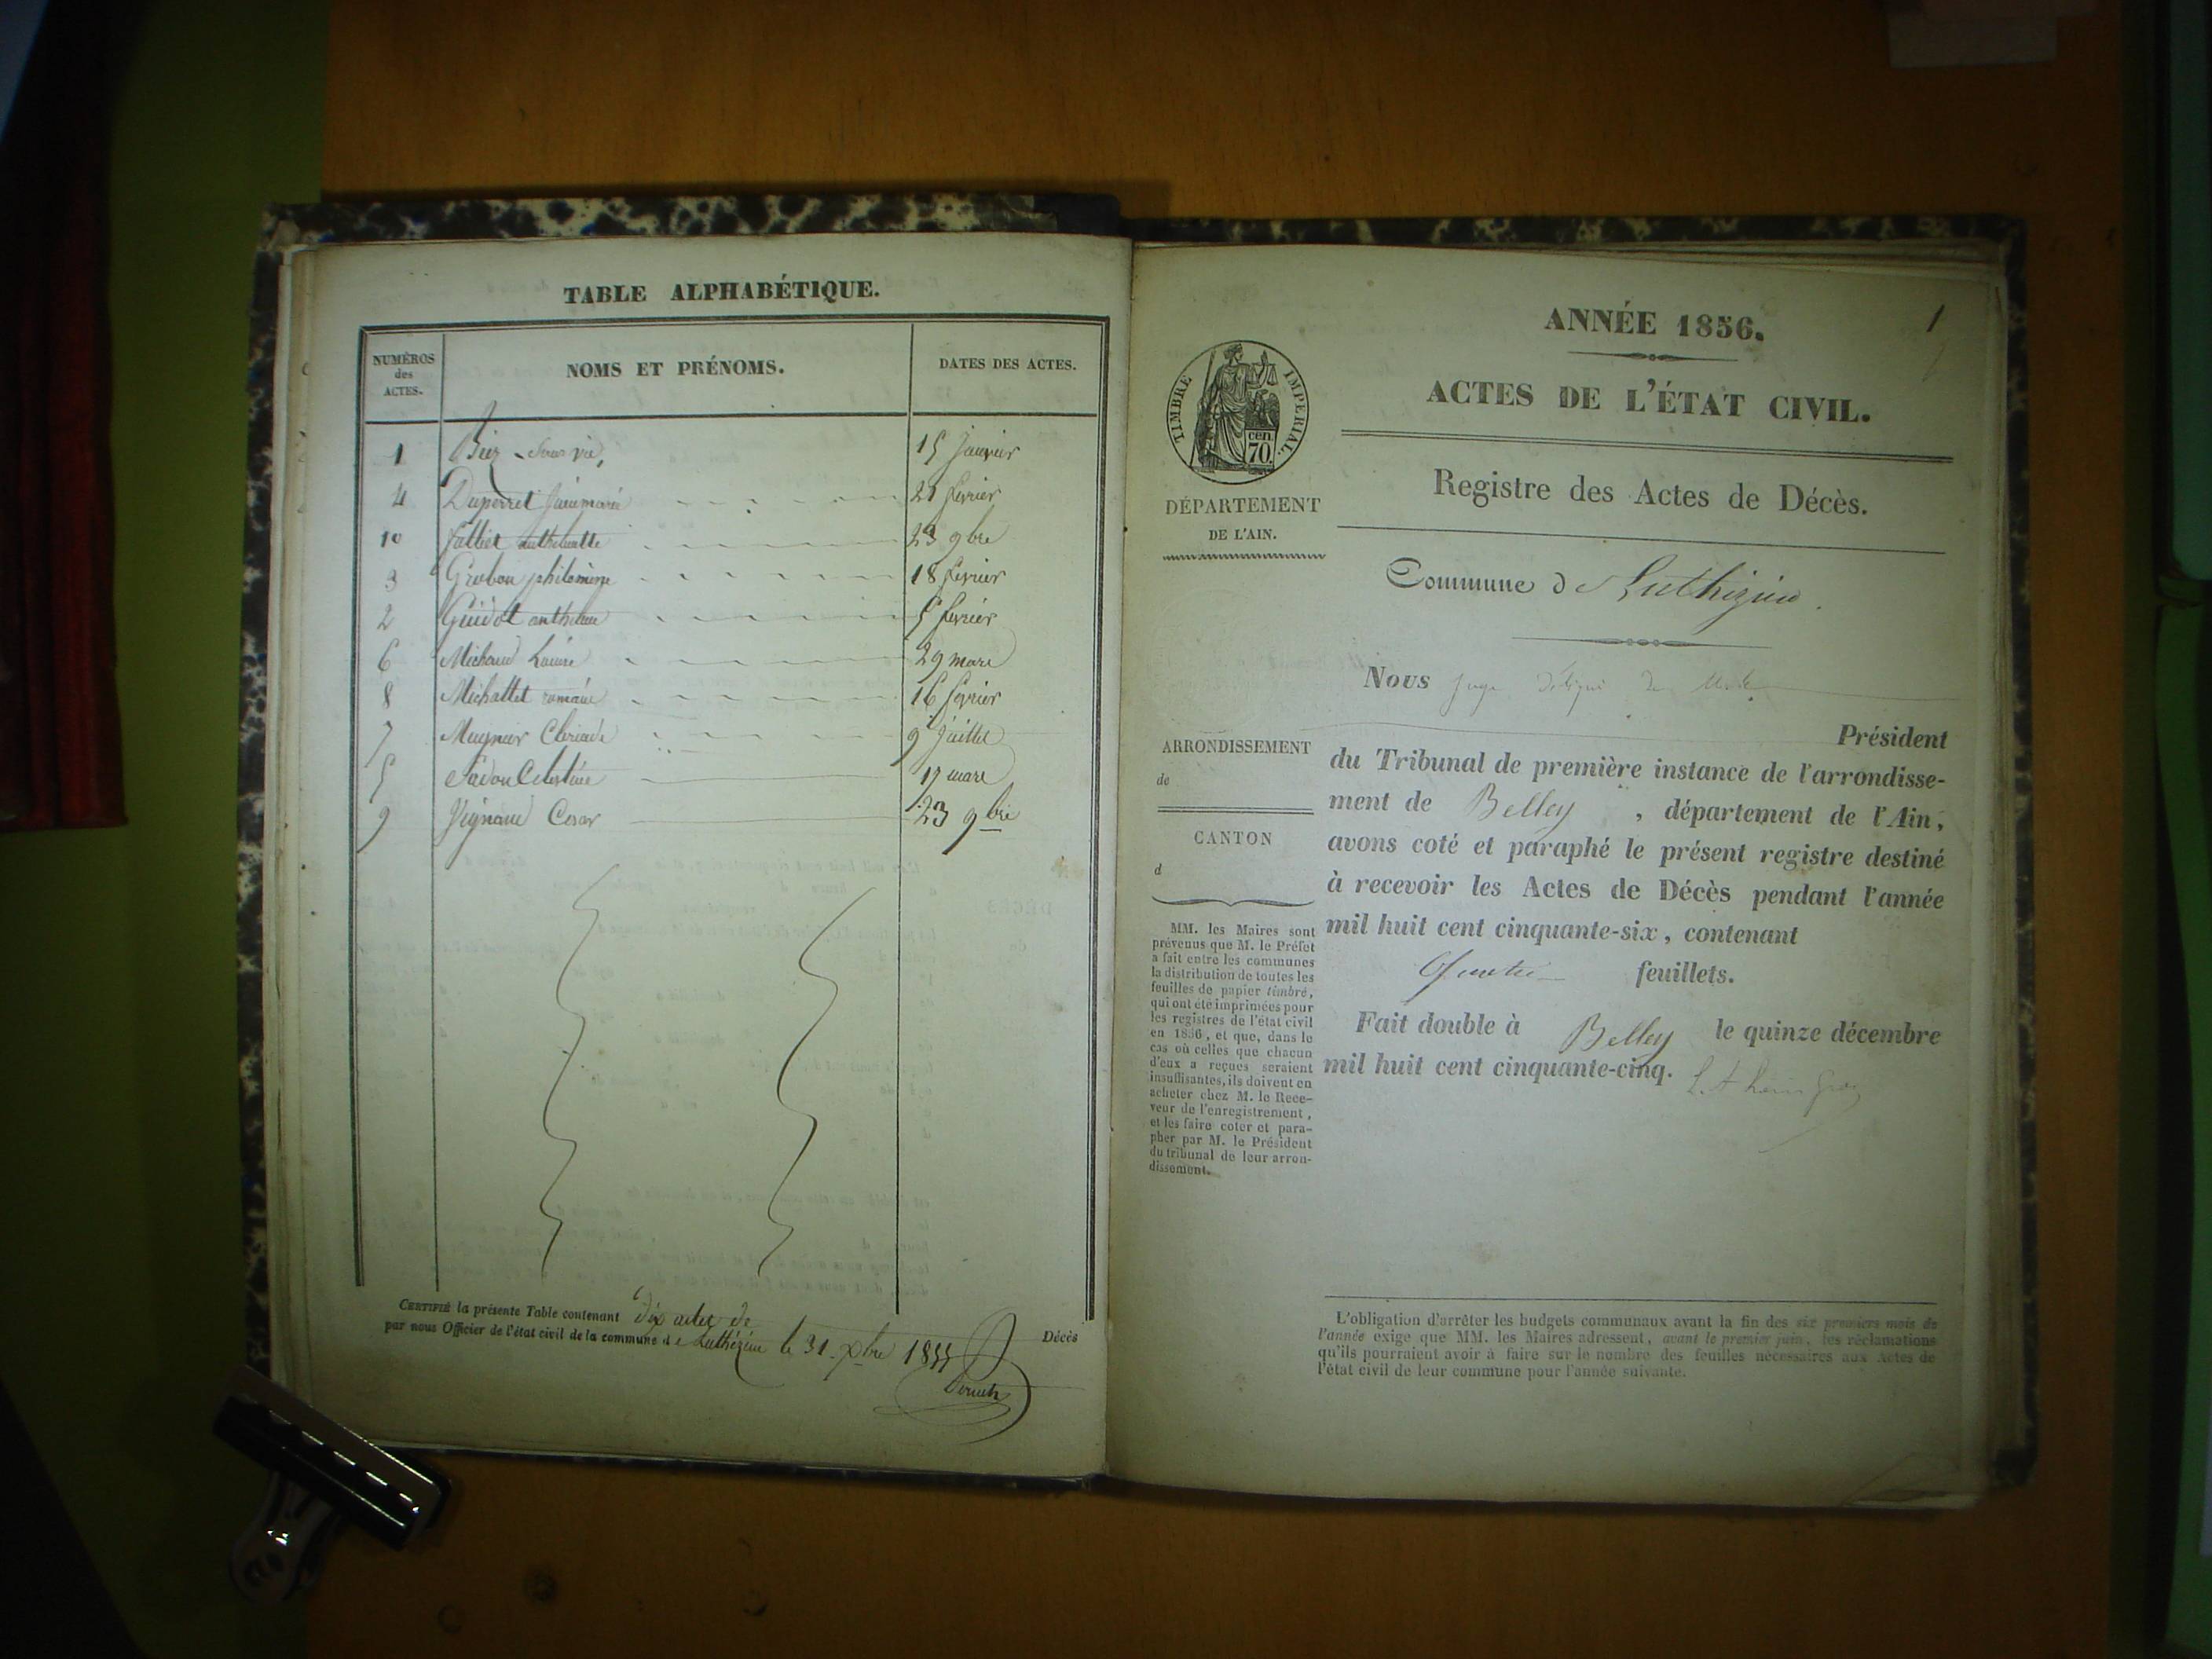 TABLE ALPHABÉTIQUE.
NUMÉROS des ACTES.
NOMS ET PRÉNOMS.
DATES DES ACTES.
1 Biez - Sans vie, 15 janvier
4 Duperret 21 février
10 23 9bre
3 Grobon philomène 18 février
2 Guidot anthelme 5 février
6 Michaud 29 mars
8 Michallet romain 16 février
7 9 juillet
5 17 mars
9 Vignand Cesar 23 9bre
CERTIFIÉ la présente Table contenant dix actes de Décès
par nous Officier de l'état civil de la commune de Luthézieu le 31 Xbre 1855
1
ANNÉE 1856.
ACTES DE L'ÉTAT CIVIL.
TIMBRE IMPÉRIAL.
cen. 70.
DÉPARTEMENT
DE L'AIN.
Registre des Actes de Décès.
Commune de Luthézieu.
Nous juge
Président
ARRONDISSEMENT
de
CANTON
d
du Tribunal de première instance de l'arrondisse-
ment de Belley, département de l'Ain,
avons coté et paraphé le présent registre destiné
à recevoir les Actes de Décès pendant l'année
mil huit cent cinquante-six, contenant
feuillets.
Fait double à Belley le quinze décembre
mil huit cent cinquante-cinq.
MM. les Maires sont
prévenus que M. le Préfet
a fait entre les communes
la distribution de toutes les
feuilles de papier timbré,
qui ont été imprimées pour
les registres de l'état civil
en 1856, et que, dans le
cas où celles que chacun
d'eux a reçues seraient
insuffisantes, ils doivent en
acheter chez M. le Rece-
veur de l'enregistrement,
et les faire coter et para-
pher par M. le Président
du tribunal de leur arron-
dissement.
L'obligation d'arrêter les budgets communaux avant la fin des six premiers mois de
l'année exige que MM. les Maires adressent, avant le premier juin, les réclamations
qu'ils pourraient avoir à faire sur le nombre des feuilles nécessaires aux Actes de
l'état civil de leur commune pour l'année suivante.